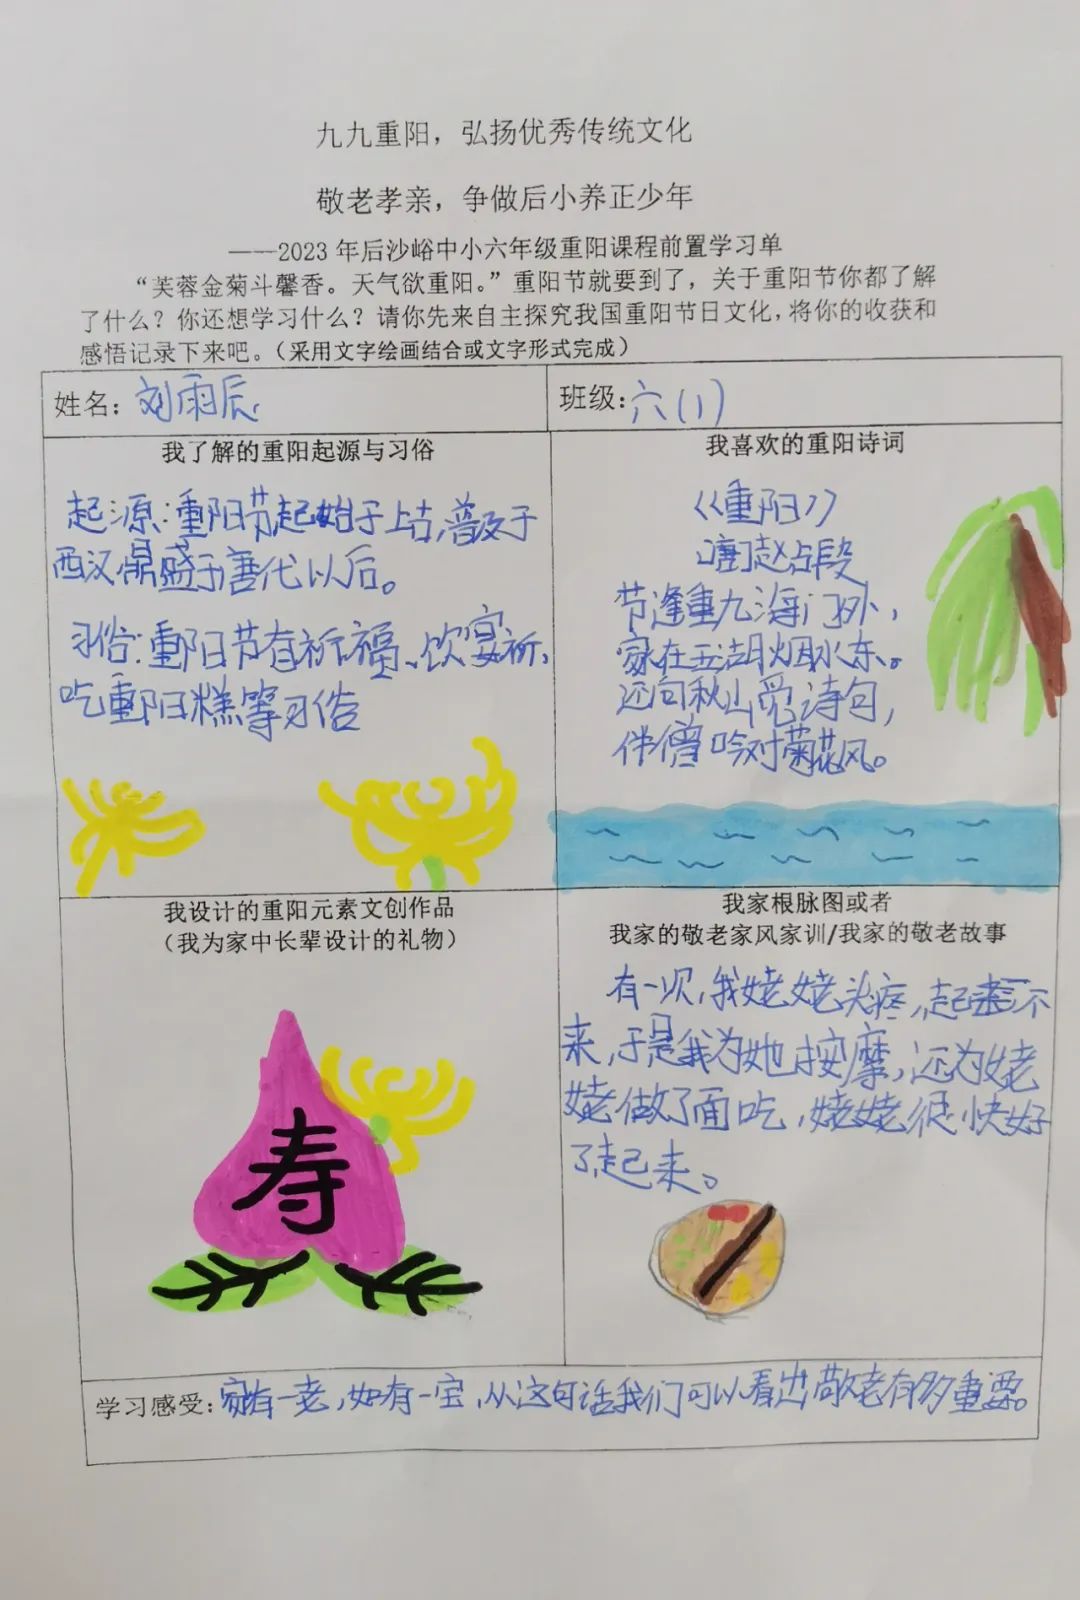 九九重阳，弘扬优秀传统文化
敬老孝亲，争做后小养正少年
——2023 年后沙峪中小六年级重阳课程前置学习单
“芙蓉金菊斗馨香。天气欲重阳。”重阳节就要到了，关于重阳节你都了解
了什么？你还想学习什么？请你先来自主探究我国重阳节日文化，将你的收获和
感悟记录下来吧。（采用文字绘画结合或文字形式完成）
姓名：刘雨辰
班级：六(1)
我了解的重阳起源与习俗
起源：重阳节起始于上古，普及于
西汉，鼎盛于唐代以后。
习俗：重阳节有祈福、饮宴祈，
吃重阳糕等习俗
我喜欢的重阳诗词
《重阳》
[唐]赵占段
节逢重九海门外，
家在五湖烟水东。
还向秋山觅诗句，
伴僧吟对菊花风。
我设计的重阳元素文创作品
（我为家中长辈设计的礼物）
寿
我家根脉图或者
我家的敬老家风家训/我家的敬老故事
有一次，我姥姥头疼，起不
来，于是我为她按摩，还为姥
姥做了面吃，姥姥很快好
了起来。
学习感受：家有一老，如有一宝，从这句话我们可以看出敬老有多重要。